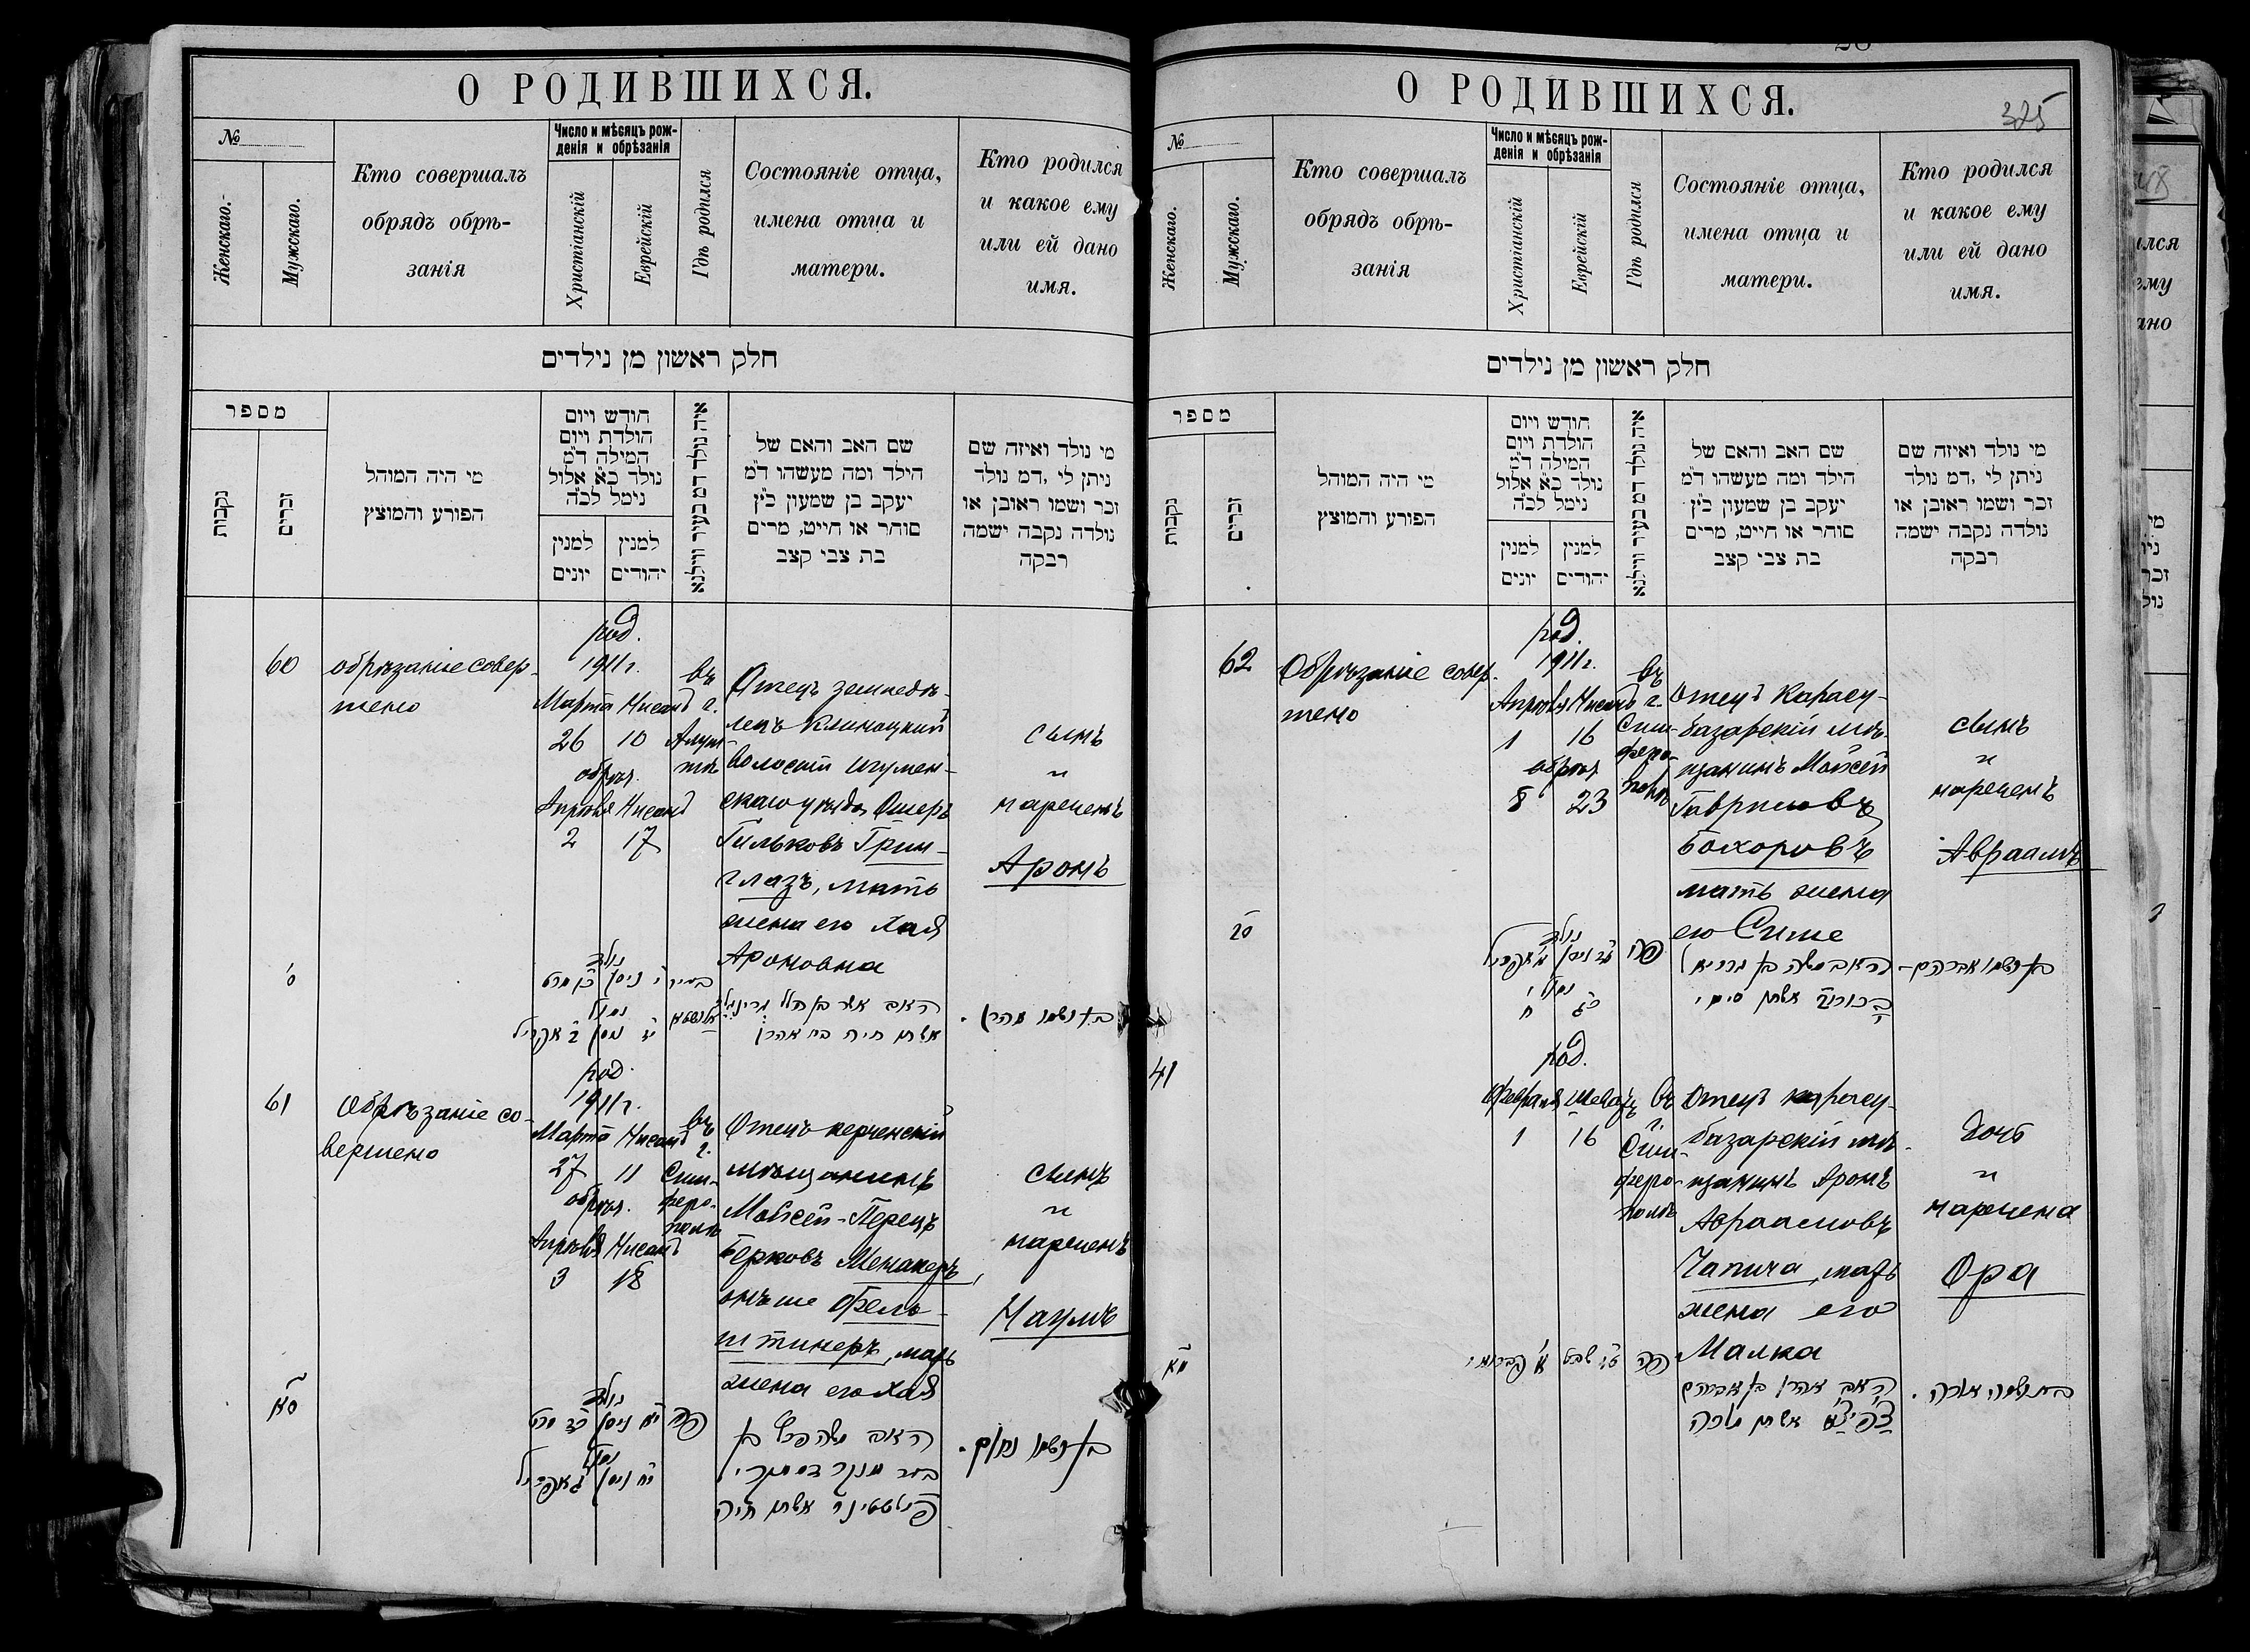 О РОДИВШИХСЯ.
№
Женскаго.
Мужскаго.
Кто совершалъ
обрядъ обрѣ-
занія
Число и мѣсяцъ рож-
денія и обрѣзанія
Христіанскій
Еврейскій
Гдѣ родился
Состояніе отца,
имена отца и
матери.
Кто родился
и какое ему
или ей дано
имя.
חלק ראשון מן נילדים
מספר
נקבות
זכרים
מי היה המוהל
הפורע והמוצץ
חודש ויום
הולדת ויום
המילה ד״מ
נולד כ״א אלול
נימל לכ״ה
למנין
יונים
למנין
יהודים
איה נולד דמ בעיר ווילנא
שם האב והאם של
הילד ומה מעשהו ד״מ
יעקב בן שמעון כ״ץ
סוחר או חייט, מרים
בת צבי קצב
מי נולד ואיזה שם
ניתן לי ,דמ נולד
זכר ושמו ראובן או
נולדה נקבה ישמה
רבקה
60
обрѣзаніе совер-
шено
род.
1911 г.
Марта Нисанъ
26 10
обрѣз.
Апрѣля Нисанъ
2 17
въ
г.
Алуш-
тѣ
Отецъ земледѣ-
лецъ
волости Игумен-
скаго уѣзда, Ошеръ
Гильковъ Грин-
глазъ, мать
жена его Хая
Ароновна
сынъ
и
нареченъ
Аронъ
ס
נולד
י ניסן
נמול
יז ניסן ב אפריל
האב אשר בן הלל גרינגלז
אשתו חיה בת אהרן
בן ושמו אהרן
61
Обрѣзаніе со-
вершено
род.
1911 г.
Марта Нисанъ
27 11
обрѣз.
Апрѣля Нисанъ
3 18
въ
г.
Сим-
феро-
полѣ
Отецъ керченскій
мѣщанинъ
Мойсей-Перецъ
Берковъ Менакеръ,
онъ же Фель-
штинеръ, мать
жена его Хая
сынъ
и
нареченъ
Наумъ
סא
נולד
יא ניסן כז מרט
נמול
יח ניסן ג אפריל
פה
האב משה פרץ בן
פלשטינר אשתו חיה
בן ושמו נחום
О РОДИВШИХСЯ.
325
№
Женскаго.
Мужскаго.
Кто совершалъ
обрядъ обрѣ-
занія
Число и мѣсяцъ рож-
денія и обрѣзанія
Христіанскій
Еврейскій
Гдѣ родился
Состояніе отца,
имена отца и
матери.
Кто родился
и какое ему
или ей дано
имя.
חלק ראשון מן נילדים
מספר
נקבות
זכרים
מי היה המוהל
הפורע והמוצץ
חודש ויום
הולדת ויום
המילה ד״מ
נולד כ״א אלול
נימל לכ״ה
למנין
יונים
למנין
יהודים
איה נולד דמ בעיר ווילנא
שם האב והאם של
הילד ומה מעשהו ד״מ
יעקב בן שמעון כ״ץ
סוחר או חייט, מרים
בת צבי קצב
מי נולד ואיזה שם
ניתן לי ,דמ נולד
זכר ושמו ראובן או
נולדה נקבה ישמה
רבקה
62
Обрѣзаніе совер-
шено
род.
1911 г.
Апрѣля Нисанъ
1 16
обрѣз
8 23
въ
г.
Сим-
феро-
полѣ
Отецъ Карасу-
базарскій мѣ-
щанинъ Мойсей
Гавриловъ
Бохоровъ
мать жена
его Симе
сынъ
и
нареченъ
Авраамъ
סב
נולד
טז ניסן א אפריל
נמול
כג ח
פה
האב משה בן גבריאל
בכורוב אשתו סימי
בן ושמו אברהם
41
род.
Февраля Шеватъ
1 16
въ
г.
Сим-
феро-
полѣ
Отецъ карасу-
базарскій мѣ-
щанинъ Аронъ
Авраамовъ
Чапича, мать
жена его
Малка
дочь
и
наречена
Ора
מא
פה
האב אהרן בן אברהם
צפיצא אשתו מלכה
בת ושמה אורה